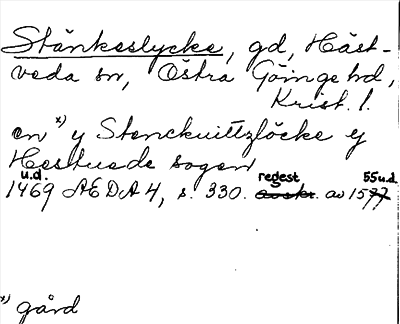 Stänkeslycke, gd, Häst-
veda sn, Östra Göinge hd,
Krist. l.
en x) y Stenckuittzlöcke ej
Hestuede sogen
u.d. regest 55 u.d.
1469 ÆDA 4, s. 330. avskr. av 1577
x) gård